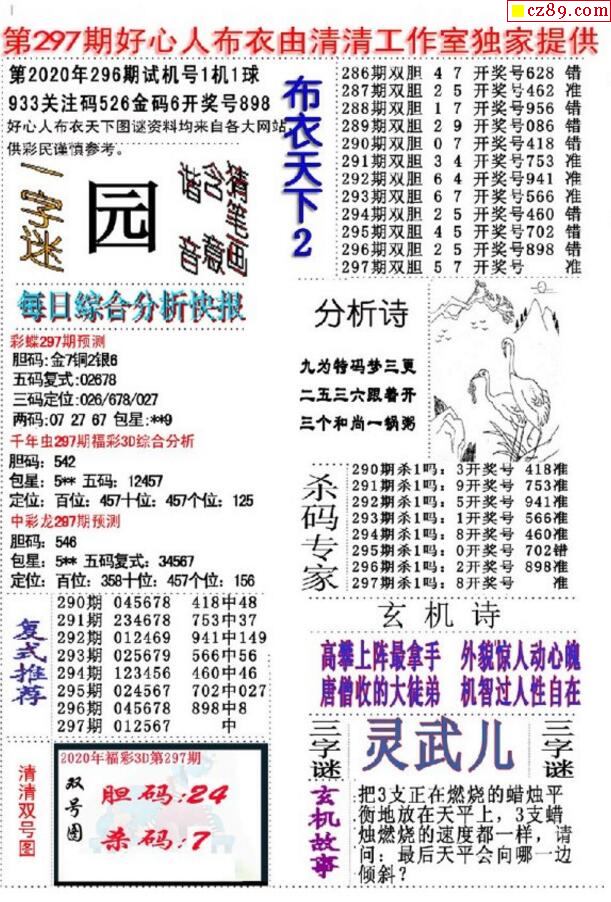 cz89.com
第297期好心人布衣由清清工作室独家提供
第2020年296期试机号1机1球
933关注码526金码6开奖号898
好心人布衣天下图谜资料均来自各大网站,
供彩民谨慎参考。
一字迷
园
猜笔画
含意
谐音
每日综合分析快报
彩蝶297期预测
胆码:金7铜2银6
五码复式:02678
三码定位:026/678/027
两码:07 27 67 包星:**9
千年虫297期福彩3D综合分析
胆码: 542
包星: 5** 五码: 12457
定位: 百位: 457十位: 457个位: 125
中彩龙297期预测
胆码: 546
包星: 5** 五码复式: 34567
定位: 百位: 358十位: 457个位: 156
复式推荐
290期 045678 418中48
291期 234678 753中37
292期 012469 941中149
293期 025679 566中56
294期 123456 460中46
295期 024567 702中027
296期 045678 898中8
297期 012567 中
清清双号图
2020年福彩3D第297期
双号图
胆码:24
杀码:7
布衣天下2
286期双胆 4 7 开奖号628 错
287期双胆 2 5 开奖号462 准
288期双胆 1 7 开奖号956 错
289期双胆 2 9 开奖号086 错
290期双胆 0 7 开奖号418 错
291期双胆 3 4 开奖号753 准
292期双胆 6 4 开奖号941 准
293期双胆 6 7 开奖号566 准
294期双胆 2 5 开奖号460 错
295期双胆 4 5 开奖号702 错
296期双胆 2 5 开奖号898 错
297期双胆 5 7 开奖号 准
分析诗
九为特码梦三更
二五三六跟着开
三个和尚一锅粥
杀码专家
290期杀1吗: 3开奖号 418准
291期杀1吗: 9开奖号 753准
292期杀1吗: 5开奖号 941准
293期杀1吗: 1开奖号 566准
294期杀1吗: 8开奖号 460准
295期杀1吗: 0开奖号 702错
296期杀1吗: 2开奖号 898准
297期杀1吗: 8开奖号 准
玄机诗
高攀上阵最拿手 外貌惊人动心魄
唐僧收的大徒弟 机智过人性自在
三字谜
灵武儿
三字谜
玄机故事
把3支正在燃烧的蜡烛平
衡地放在天平上，3支蜡
烛燃烧的速度都一样，请
问：最后天平会向哪一边
倾斜？